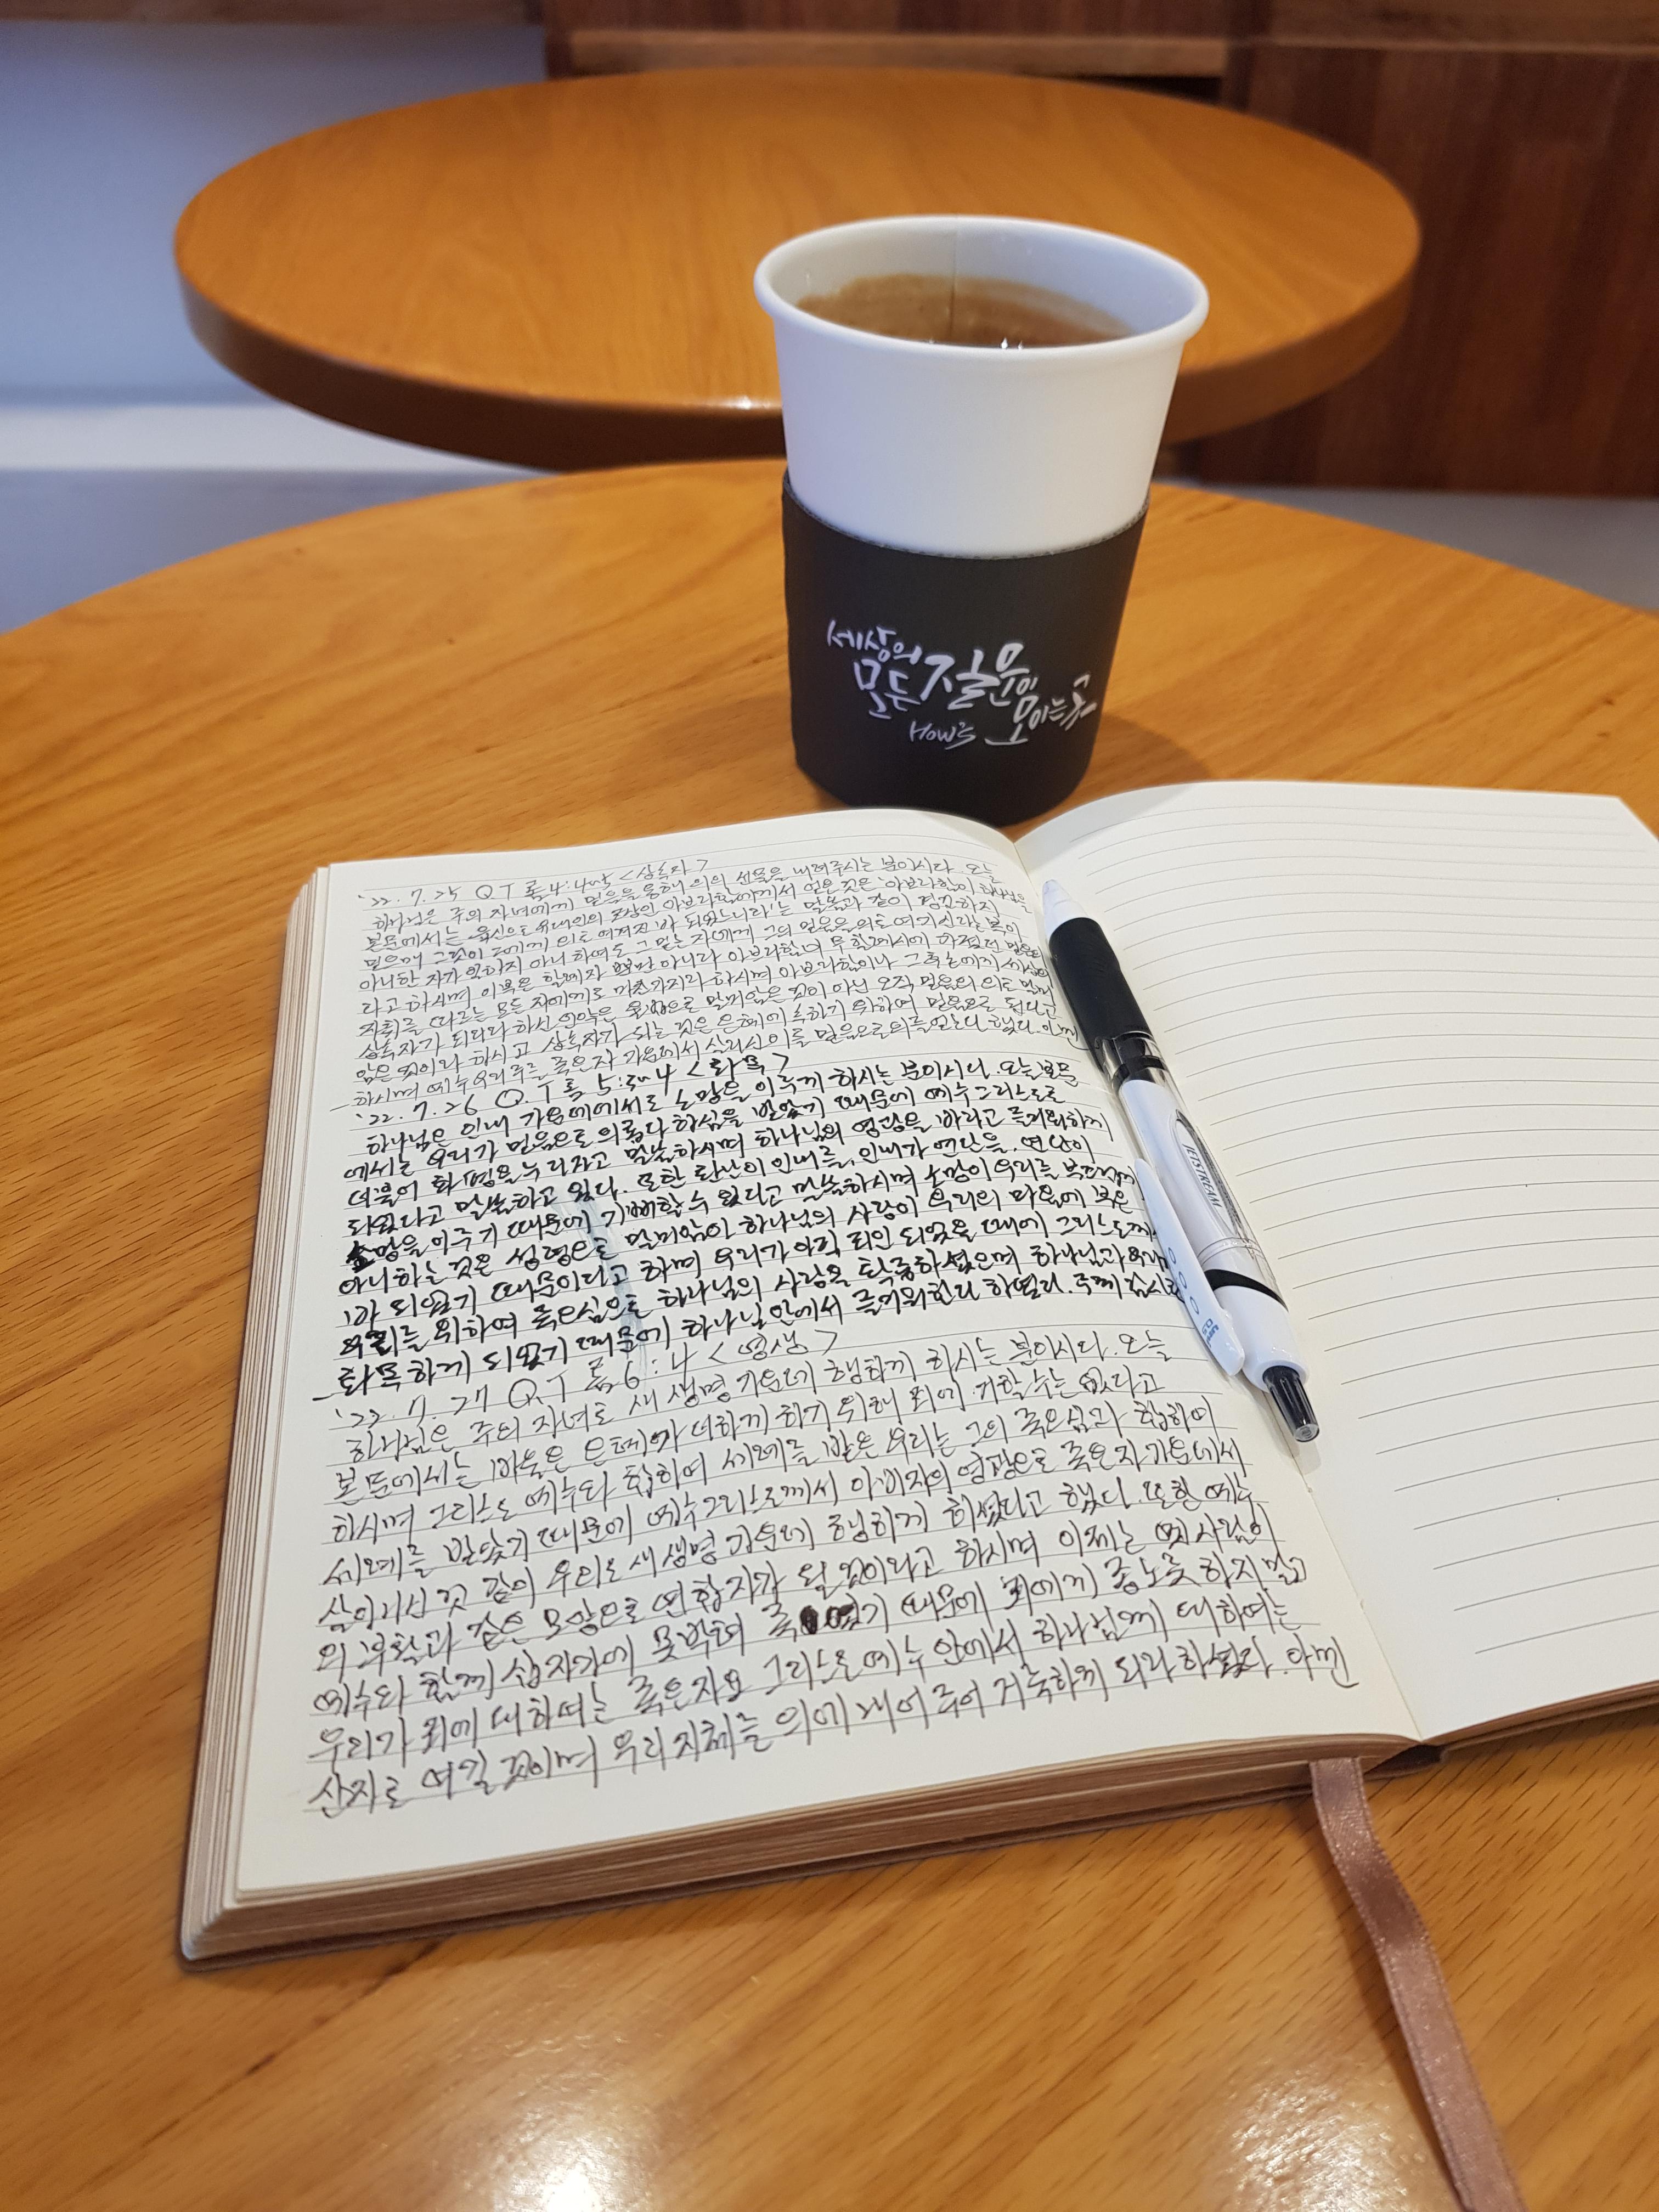 세상의
모든 질문이
모이는 곳
How's
'22. 7. 25 Q.T 롬 4: <상속자>
하나님은 주의 자녀에게 믿음을 통해 의의 선물을 내려주시는 분이시다. 오늘
본문에서는 육신으로 조상인 아브라함에게서 얻은 것은 '아브라함이 하나님을
믿으매 그것이 그에게 의로 여겨진 바 되었느니라'는 말씀과 같이 경건하지
아니한 자가 일하지 아니하여도 그 믿는 자에게 그의 믿음을 의로 여기신다는
라고 하시며 이 복은 할례자 뿐만 아니라 아브라함이 무할례시에 가졌던 믿음의
자취를 따르는 모든 자에게도 미친가지라 하시며 아브라함이나 그 후손에게 세상의
상속자가 되리라 하신 언약은 율법으로 말미암은 것이 아닌 오직 믿음의 의로
암은 것이라 하시고 상속자가 되는 것은 은혜에 속하기 위하여 믿음으로 된다고
하시며 예수 우리 주를 죽은 자 가운데서 살리신 이를 믿음으로 의를 얻는다 했다.
'22. 7. 26 Q.T 롬 5:3~4 <화목>
하나님은 인내 가운데에서도 소망을 이루게 하시는 분이시다. 오늘 본문
에서는 우리가 믿음으로 의롭다 하심을 받았기 때문에 예수 그리스도로
더불어 화평을 누리자고 말씀하시며 하나님의 영광을 바라고 즐거워하
되었다고 말씀하고 있다. 또한 환난이 인내를, 인내가 연단을, 연단이
소망을 이루기 때문에 기뻐할 수 있다고 말씀하시며 소망이 우리를 부끄럽게
아니하는 것은 성령으로 말미암아 하나님의 사랑이 우리의 마음에 부은
바 되었기 때문이다고 하며 우리가 아직 죄인 되었을 때에 그리스도께서
우리를 위하여 죽으심으로 하나님의 사랑을 확증하셨으며 하나님과 우리가
화목하게 되었기 때문에 하나님 안에서 즐거워한다 하였다. 주께 감사
'22. 7. 27 Q.T 롬 6:4 <영생>
하나님은 주의 자녀로 새 생명 가운데 행하게 하시는 분이시다. 오늘
본문에서는 바울은 은혜가 더하게 하기 위해 죄에 거할 수는 없다고
하시며 그리스도 예수와 합하여 세례를 받은 우리는 그의 죽으심과 합하여
세례를 받았기 때문에 예수 그리스도께서 아버지의 영광으로 죽은 자 가운데서
살아나심 것 같이 우리도 새 생명 가운데 행하게 하셨다고 했다. 또한 예수
의 부활과 같은 모양으로 연합자가 될 것이라고 하시며 이제는 옛 사람이
예수와 함께 십자가에 못박혀 죽었기 때문에 죄에게 종노릇 하지 말고
우리가 죄에 대하여는 죽은 자요 그리스도 예수 안에서 하나님께 대하여는
산 자로 여길 것이며 우리 지체를 의에 내어 주어 거룩하게 되라 하셨다. 아멘
JETSTREAM